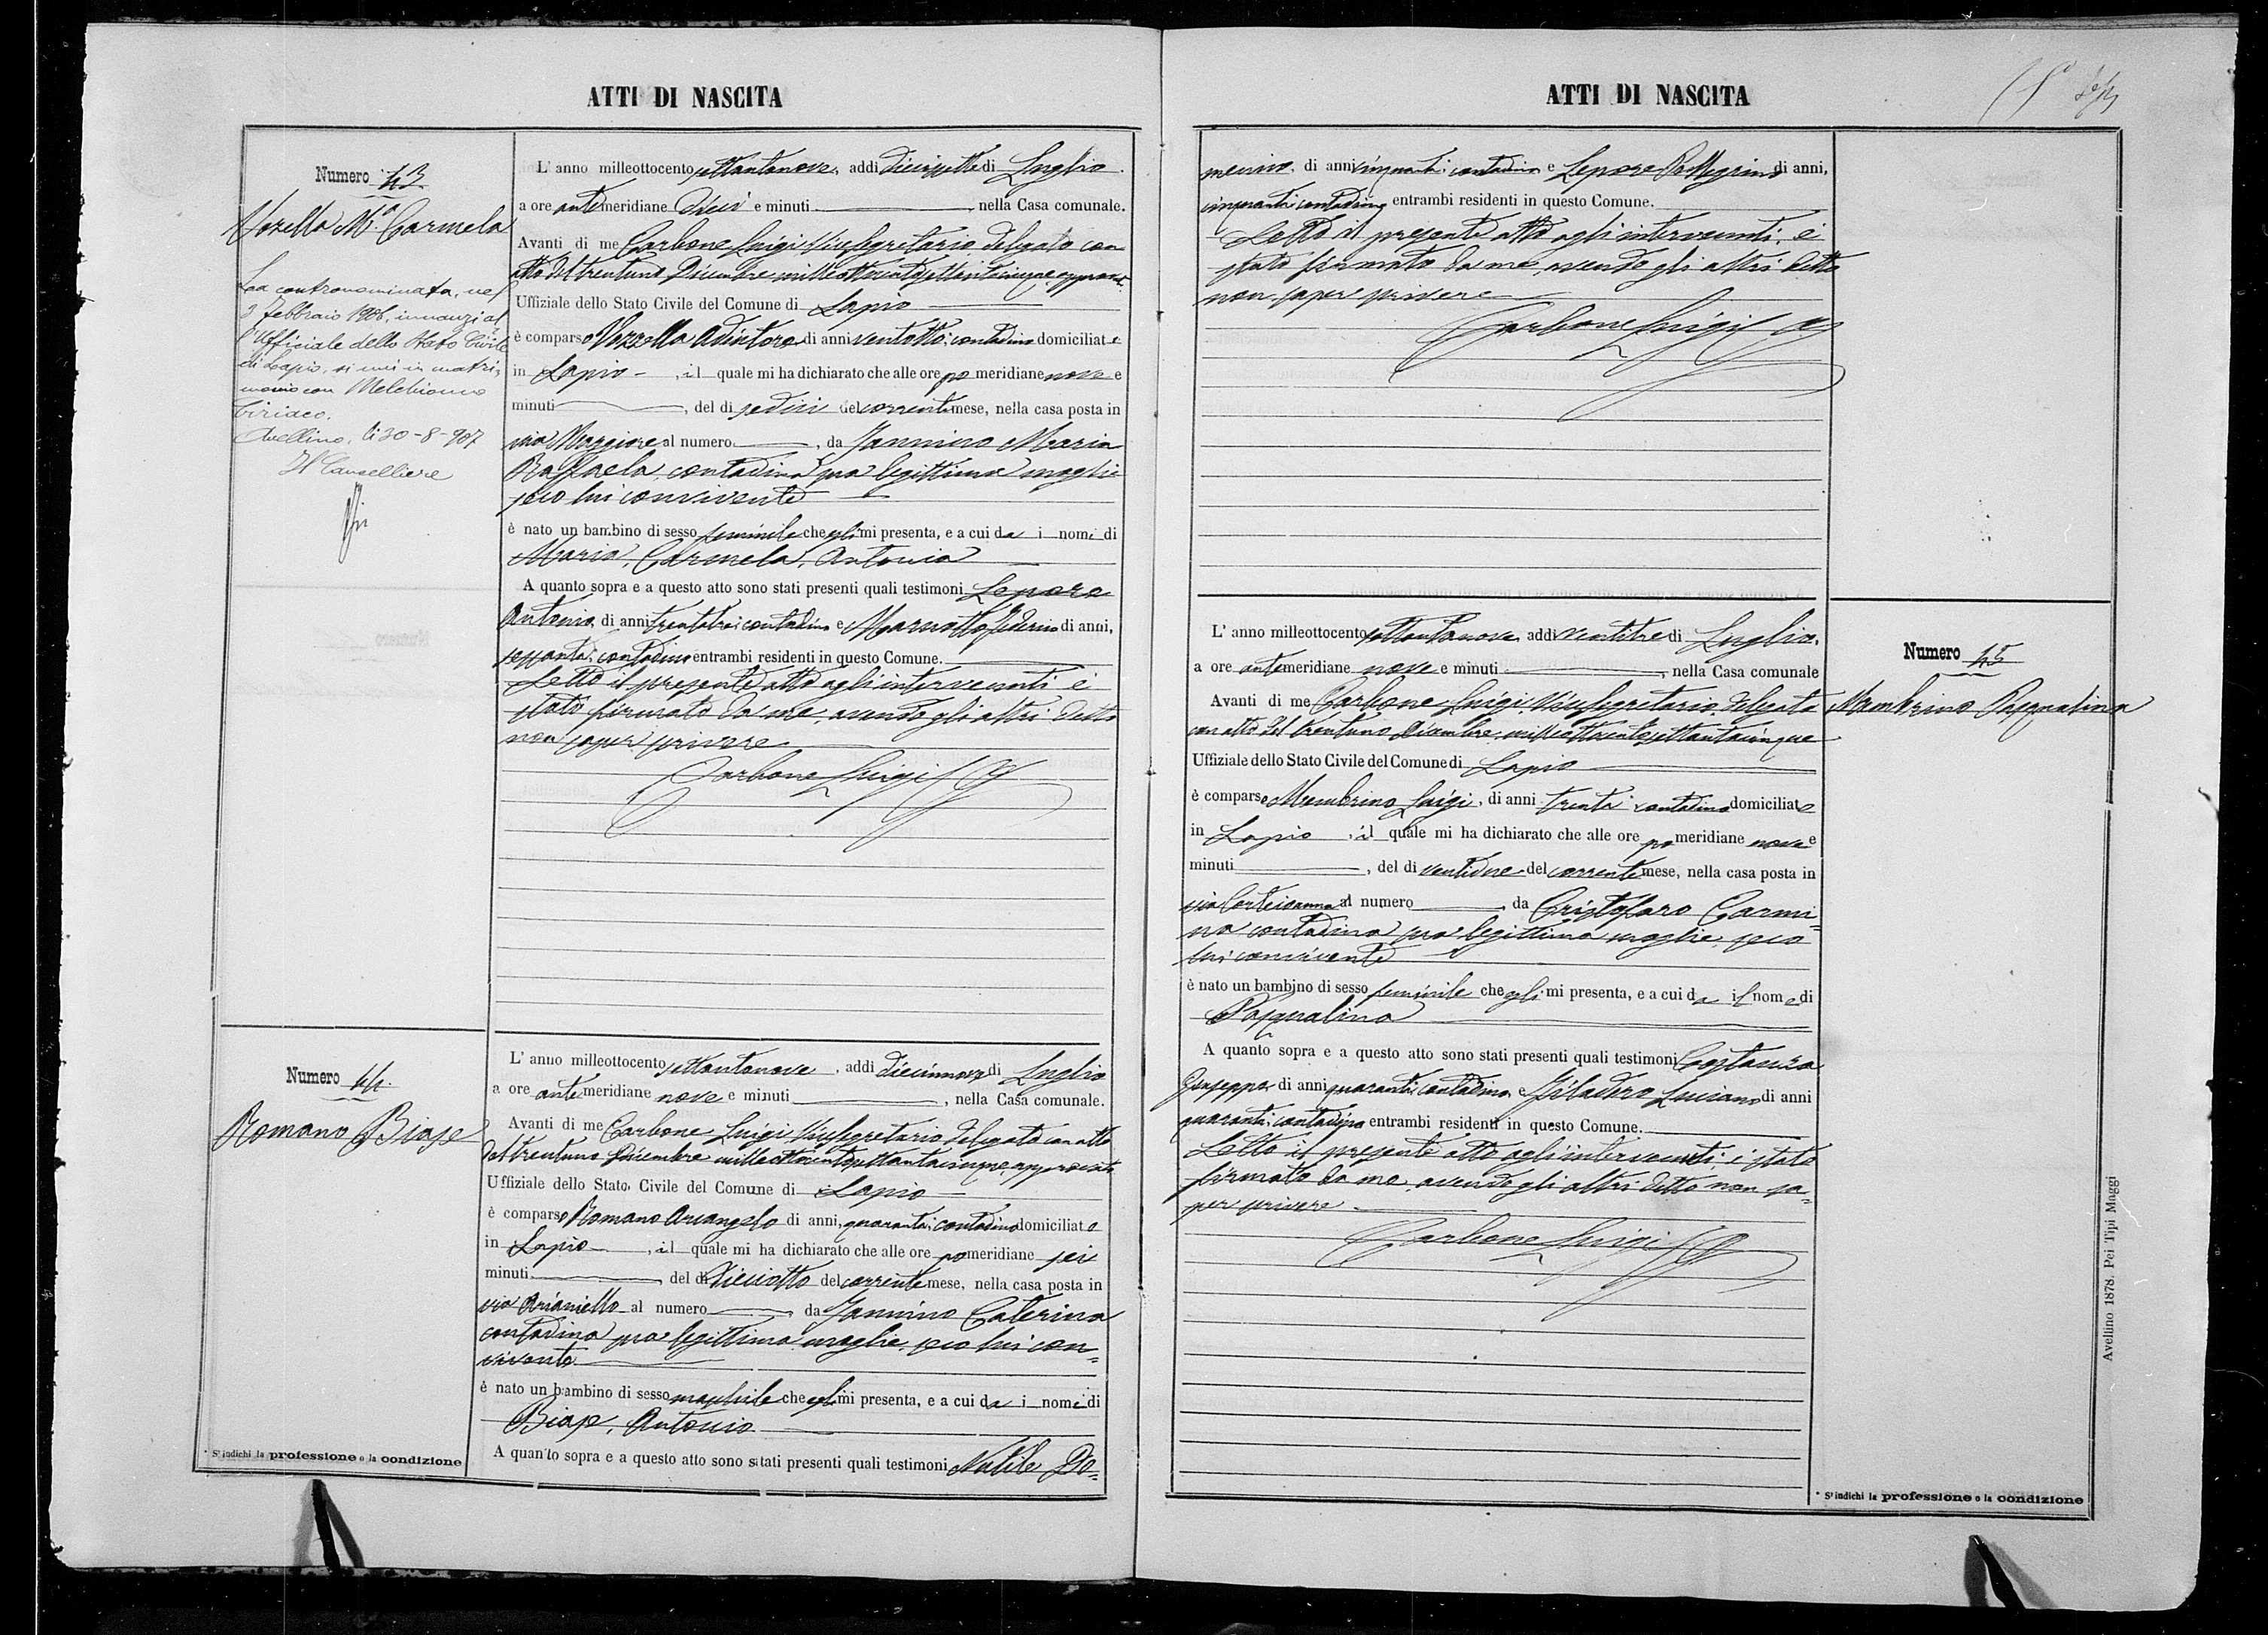 ATTI DI NASCITA
Numero 43
Vozella M.a Carmela
La contronominata, nel
3 Febbraio 1906, innanzi al
l'Ufficiale dello Stato Civile
di Lapio, si unì in matri,
monio con Melchionno
Ciriaco.
Avellino, li 30-8-907
Il Cancelliere
L'anno milleottocento settantanove, addi diecissette di Luglio
a ore antemeridiane dieci e minuti , nella Casa comunale.
Avanti di me Carbone Luigi Vicesegretario delegato con
atto del trentuno Dicembre milleottocentosettantacinque approvat.
Uffiziale dello Stato Civile del Comune di Lapio
è comparso Vozzella Adintore di anni ventotto, contadino domiciliato
in Lapio , il quale mi ha dichiarato che alle ore pomeridiane nove e
minuti , del dì sedici del corrente mese, nella casa posta in
via Maggiore al numero , da Jannino Maria
Raffaela, contadina sua legittima moglie
seco lui convivente
è nato un bambino di sesso feminile che egli mi presenta, e a cui da i nomi di
Maria, Carmela, Antonia
A quanto sopra e a questo atto sono stati presenti quali testimoni Lepore
Antonio, di anni trentatre, contadino e Marnotto Federico di anni,
sessanta, contadino entrambi residenti in questo Comune.
Letto il presente atto agli intervenuti è
stato firmato da me, avendo gli altri detto
non saper scrivere
Carbone Luigi
Numero 44.
Romano Biase
L'anno milleottocento settantanove, addi diecinnove di Luglio
a ore antemeridiane nove e minuti , nella Casa comunale.
Avanti di me Carbone Luigi Vicesegretario delegato con atto
del trentuno Dicembre milleottocentosettantacinque approvato
Uffiziale dello Stato Civile del Comune di Lapio
è comparso Romano Arcangelo di anni, quaranta, contadino domiciliato
in Lapio , il quale mi ha dichiarato che alle ore pomeridiane sei
minuti , del dì dieciotto del corrente mese, nella casa posta in
via Arianiello al numero , da Jannino Caterina
contadina sua legittima moglie, seco lui con=
vivente
è nato un bambino di sesso maschile che egli mi presenta, e a cui da i nomi di
Biase, Antonio
A quanto sopra e a questo atto sono stati presenti quali testimoni Natile Do=
* S'indichi la professione o la condizione
ATTI DI NASCITA
menico, di anni cinquanta, contadino e Lepore Pellegrino di anni,
cinquanta contadino entrambi residenti in questo Comune.
Letto il presente atto agli intervenuti, è
stato firmato da me, avendo gli altri detto
non saper scrivere
Carbone Luigi
Numero 45
Membrino Pasqualina
L'anno milleottocento settantanove, addi ventitre di Luglio,
a ore antemeridiane nove e minuti , nella Casa comunale
Avanti di me Carbone Luigi Vicesegretario, delegato
con atto del trentuno Dicembre, milleottocentosettantacinque
Uffiziale dello Stato Civile del Comune di Lapio
è comparso Membrino Luigi, di anni trenta contadino domiciliato
in Lapio , il quale mi ha dichiarato che alle ore pomeridiane nove e
minuti , del dì ventidue del corrente mese, nella casa posta in
via al numero , da Cristofaro Carmi=
na contadina sua legittima moglie, seco
lui convivente
è nato un bambino di sesso feminile che egli mi presenta, e a cui da il nome di
Pasqualina
A quanto sopra e a questo atto sono stati presenti quali testimoni Costanza
Giuseppe di anni quaranta, contadino e Filadoro Luciano di anni
quaranta, contadino entrambi residenti in questo Comune.
Letto il presente atto agli intervenuti, è stato
firmato da me, avendo gli altri detto non sa=
per scrivere
Carbone Luigi
Avellino 1878. Pei Tipi Maggi
* S'indichi la professione o la condizione